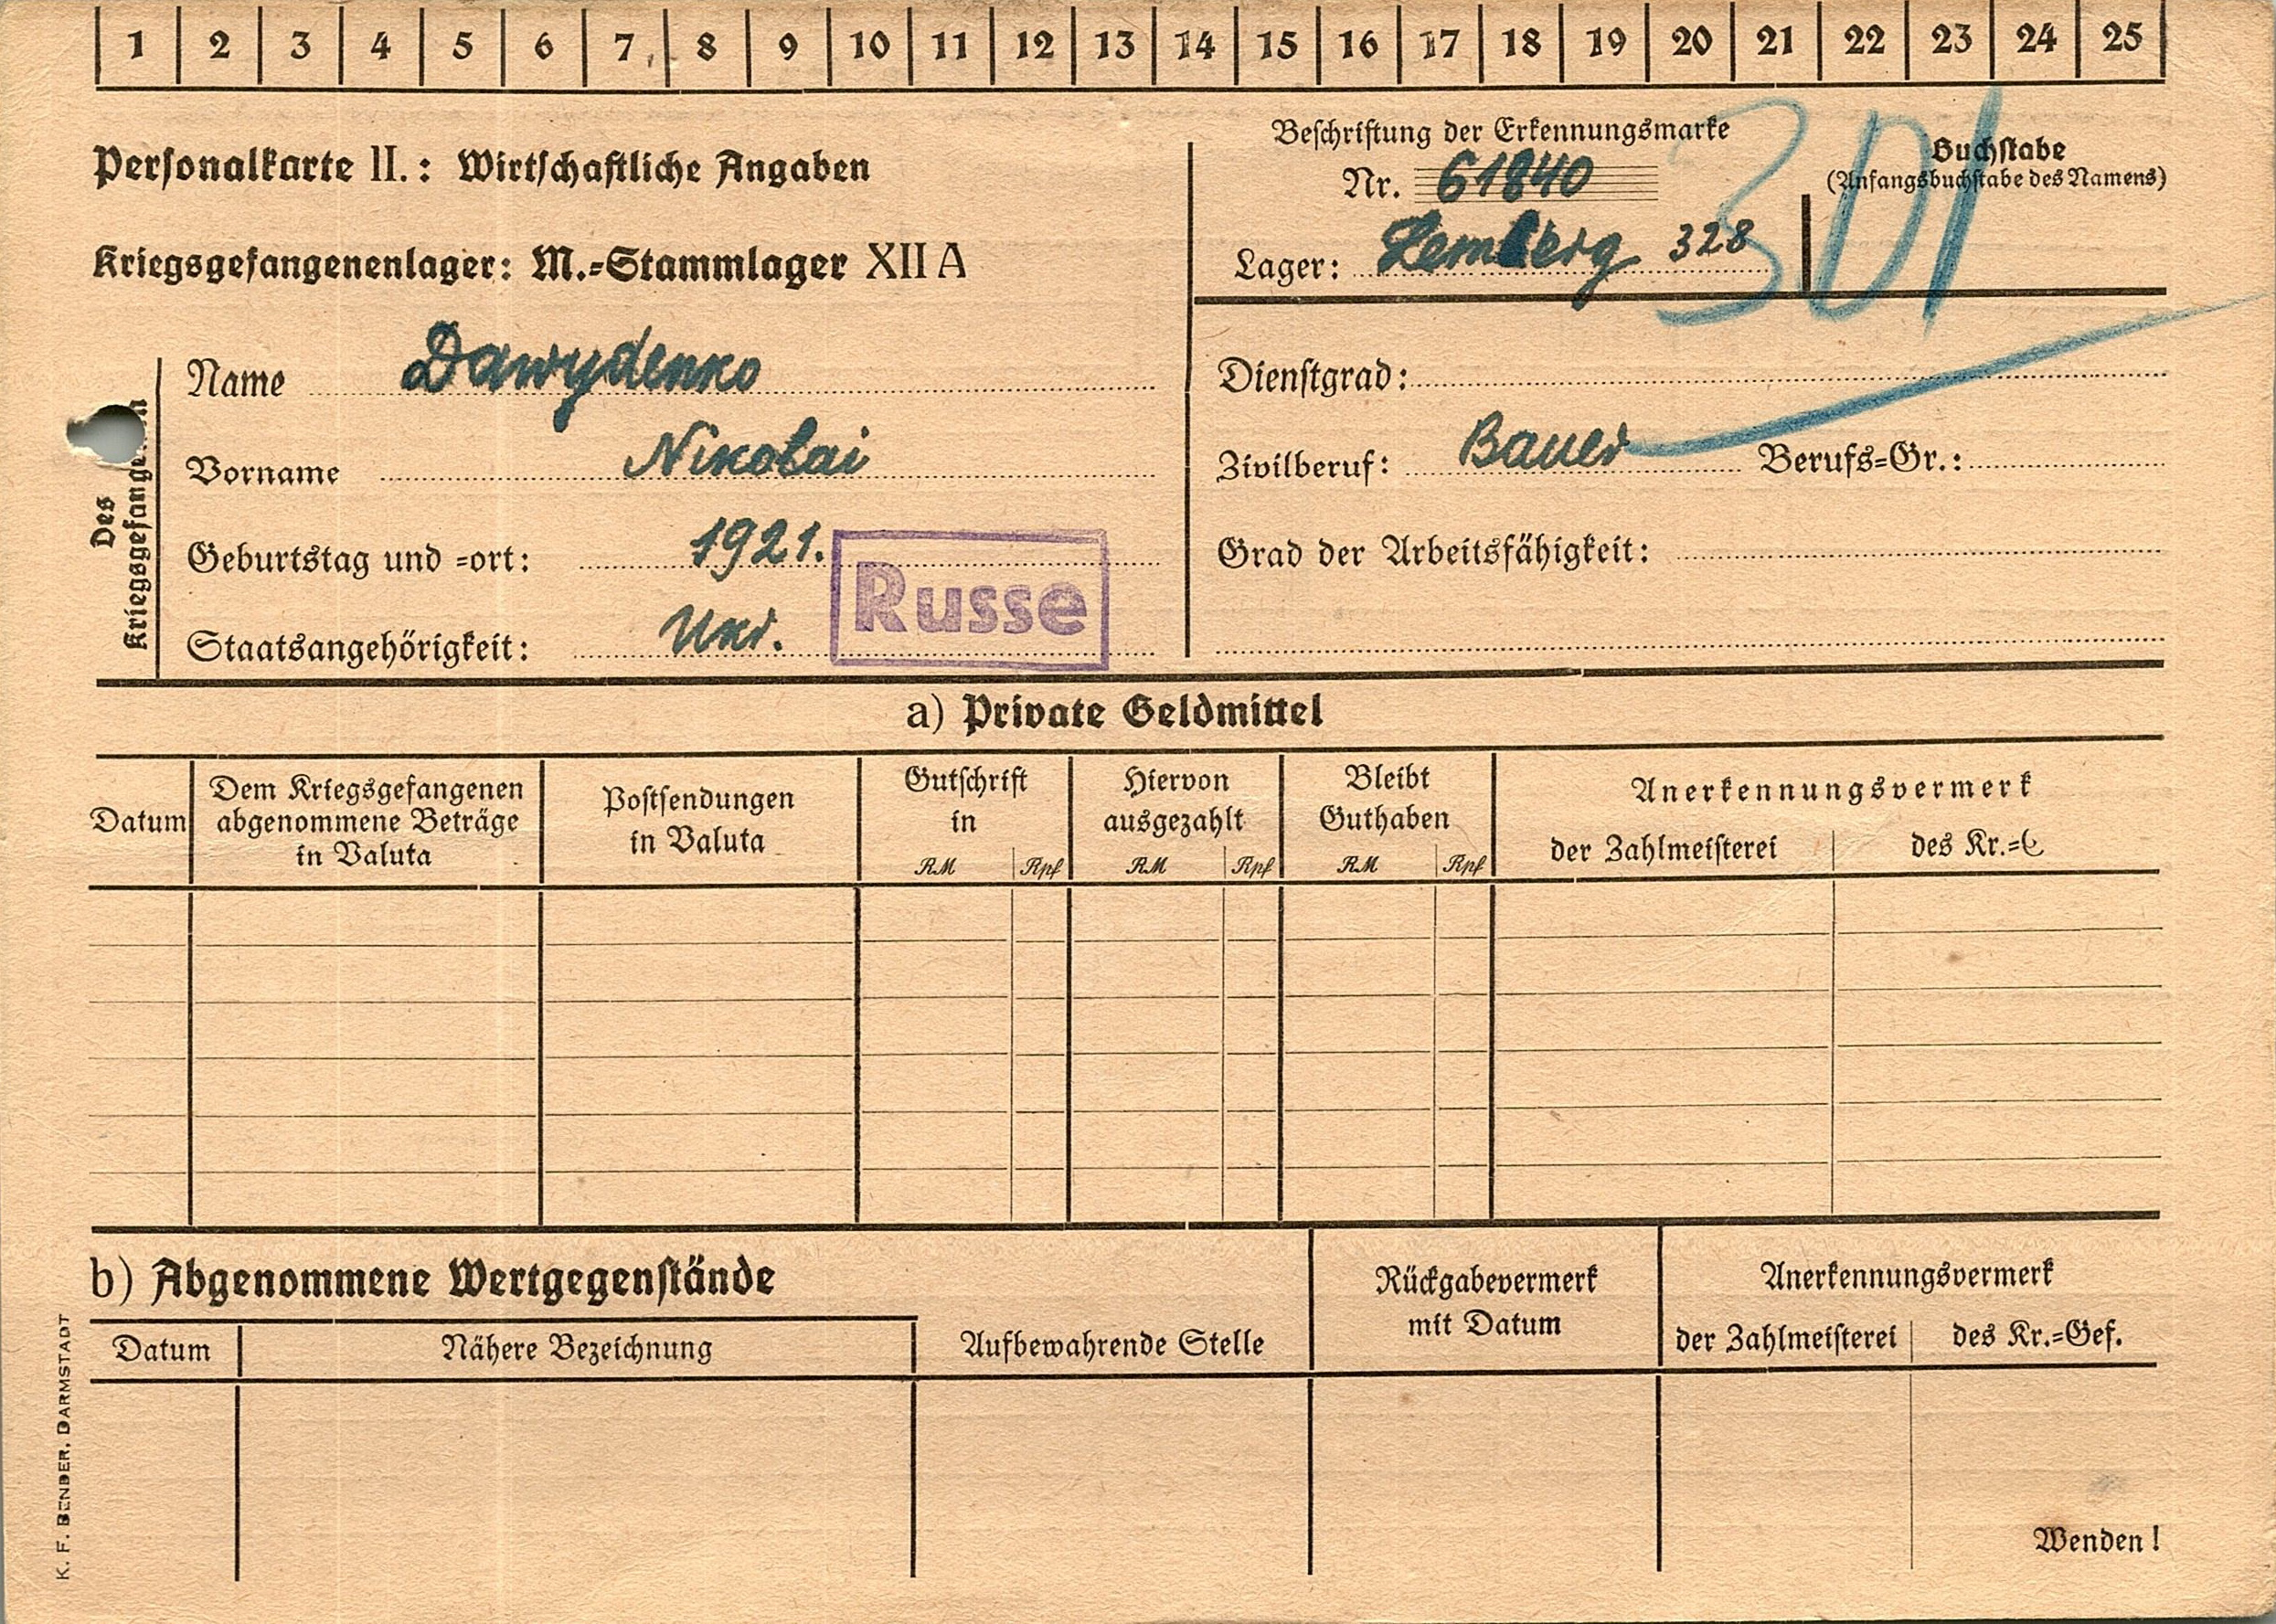 1 2 3 4 5 6 7 8 9 10 11 12 13 14 15 16 17 18 19 20 21 22 23 24 25
Personalkarte II.: Wirtschaftliche Angaben
Kriegsgefangenenlager: M.-Stammlager XII A
Beschriftung der Erkennungsmarke
Nr. 61840
Lager: Lemberg 328
Buchstabe
(Anfangsbuchstabe des Namens)
301
Des
Kriegsgefangenen
Name Dawydenko
Vorname Nikolai
Geburtstag und -ort: 1921.
Staatsangehörigkeit: Ukr.
Russe
Dienstgrad:
Zivilberuf: Bauer Berufs-Gr.:
Grad der Arbeitsfähigkeit:
a) Private Geldmittel
Datum
Dem Kriegsgefangenen
abgenommene Beträge
in Valuta
Postsendungen
in Valuta
Gutschrift
in
RM Rpf
Hiervon
ausgezahlt
RM Rpf
Bleibt
Guthaben
RM Rpf
Anerkennungsvermerk
der Zahlmeisterei
des Kr.=
b) Abgenommene Wertgegenstände
Datum
Nähere Bezeichnung
Aufbewahrende Stelle
Rückgabevermerk
mit Datum
Anerkennungsvermerk
der Zahlmeisterei
des Kr.=Gef.
Wenden!
K. F. BENDER, DARMSTADT